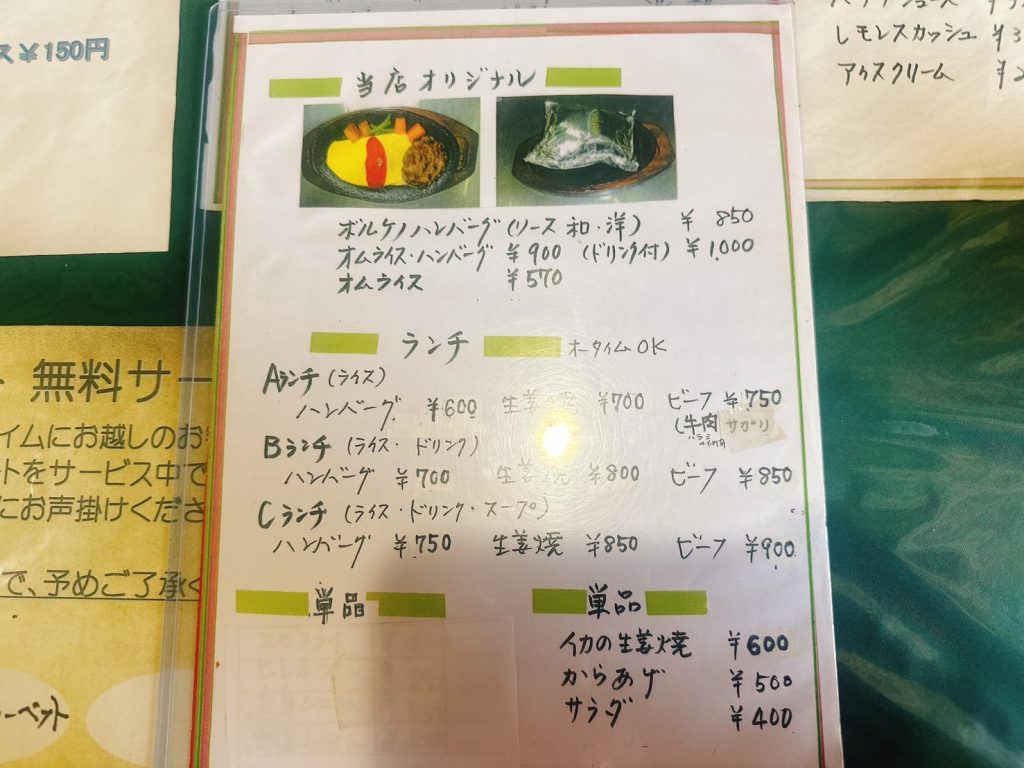 ス¥150円
レモンスカッシュ ¥3
アイスクリーム ¥2
当店オリジナル
ボルケノハンバーグ(ソース 和・洋) ¥ 850
オムライス・ハンバーグ ¥900 (ドリンク付) ¥1,000
オムライス ¥570
ランチ オータイムOK
Aランチ(ライス)
ハンバーグ ¥600 生姜焼 ¥700 ビーフ ¥750
(牛肉 サガリ
Bランチ(ライス・ドリンク)
ハンバーグ ¥700 生姜焼 ¥800 ビーフ ¥850
Cランチ(ライス・ドリンク・スープ)
ハンバーグ ¥750 生姜焼 ¥850 ビーフ ¥900
単品
単品
イカの生姜焼 ¥600
からあげ ¥500
サラダ ¥400
無料サー
イムにお越しのお
ットをサービス中で
にお声掛けくださ
で、予めご了承く
ーベット